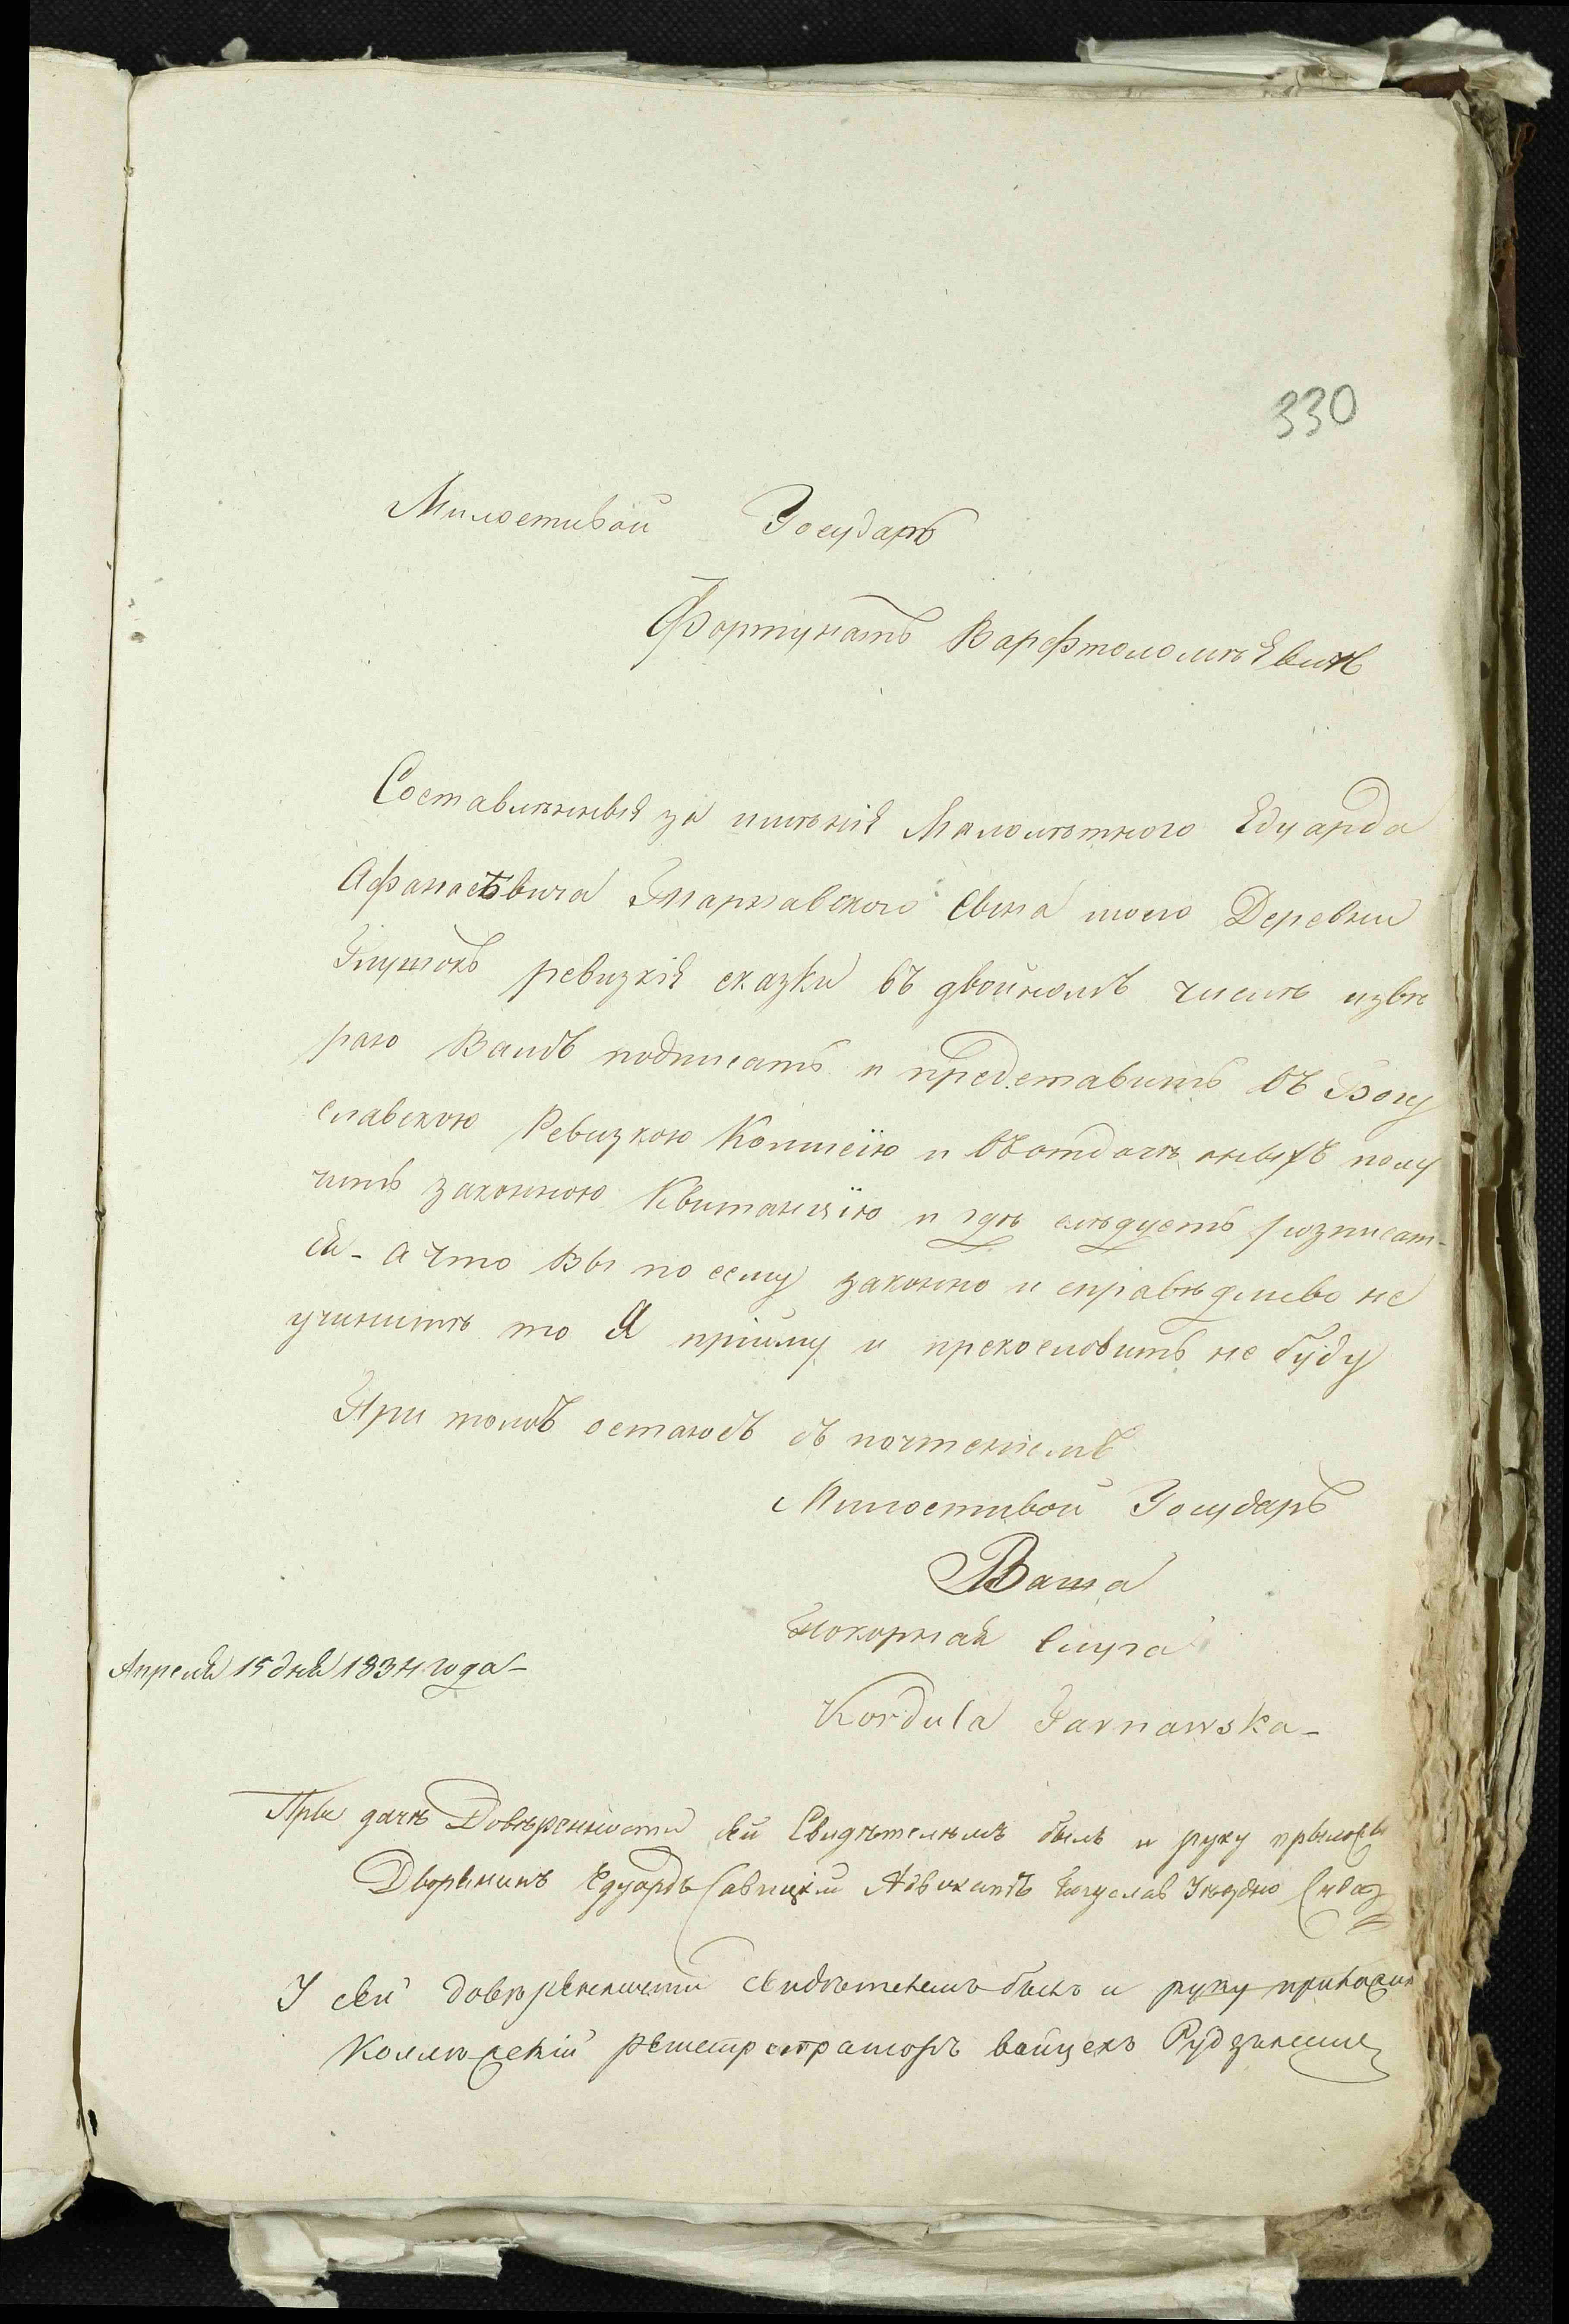 330
Милостивой Государь
Фортунатъ Варфтоломѣевичь
Составлѣнныя за имѣнія Малолѣтного Едуарда
Афанасѣвича Тварнавского Сына моего Деревни
ревизкія сказки въ двойномъ числѣ извѣ
раю Вамъ подписать и представить въ Богу
славскою Ревизкою Комисію и въ отдачѣ оныхъ полу
чить законною Квитанцію и гдѣ слѣдуетъ розписат-
си - А что Вы по сему законно и справѣдливо не
учинитѣ то Я пріиму и прекословить не буду
При томъ остаюсь съ почтеніемъ
Милостивой Государь
Ваша
Покорная Слуга
Апреля 15 дня 1834 года -
Kordula Tarnawska -
Пры дачѣ Довѣренности сей Свидѣтелемъ былъ и руку прыложы
Дворянинъ Едуардъ Савицкій Адвокатъ Богуслав
У сей довѣренности свидѣтелемъ былъ и руку приложил
Коллѣжскій регистраторъ Войцехъ